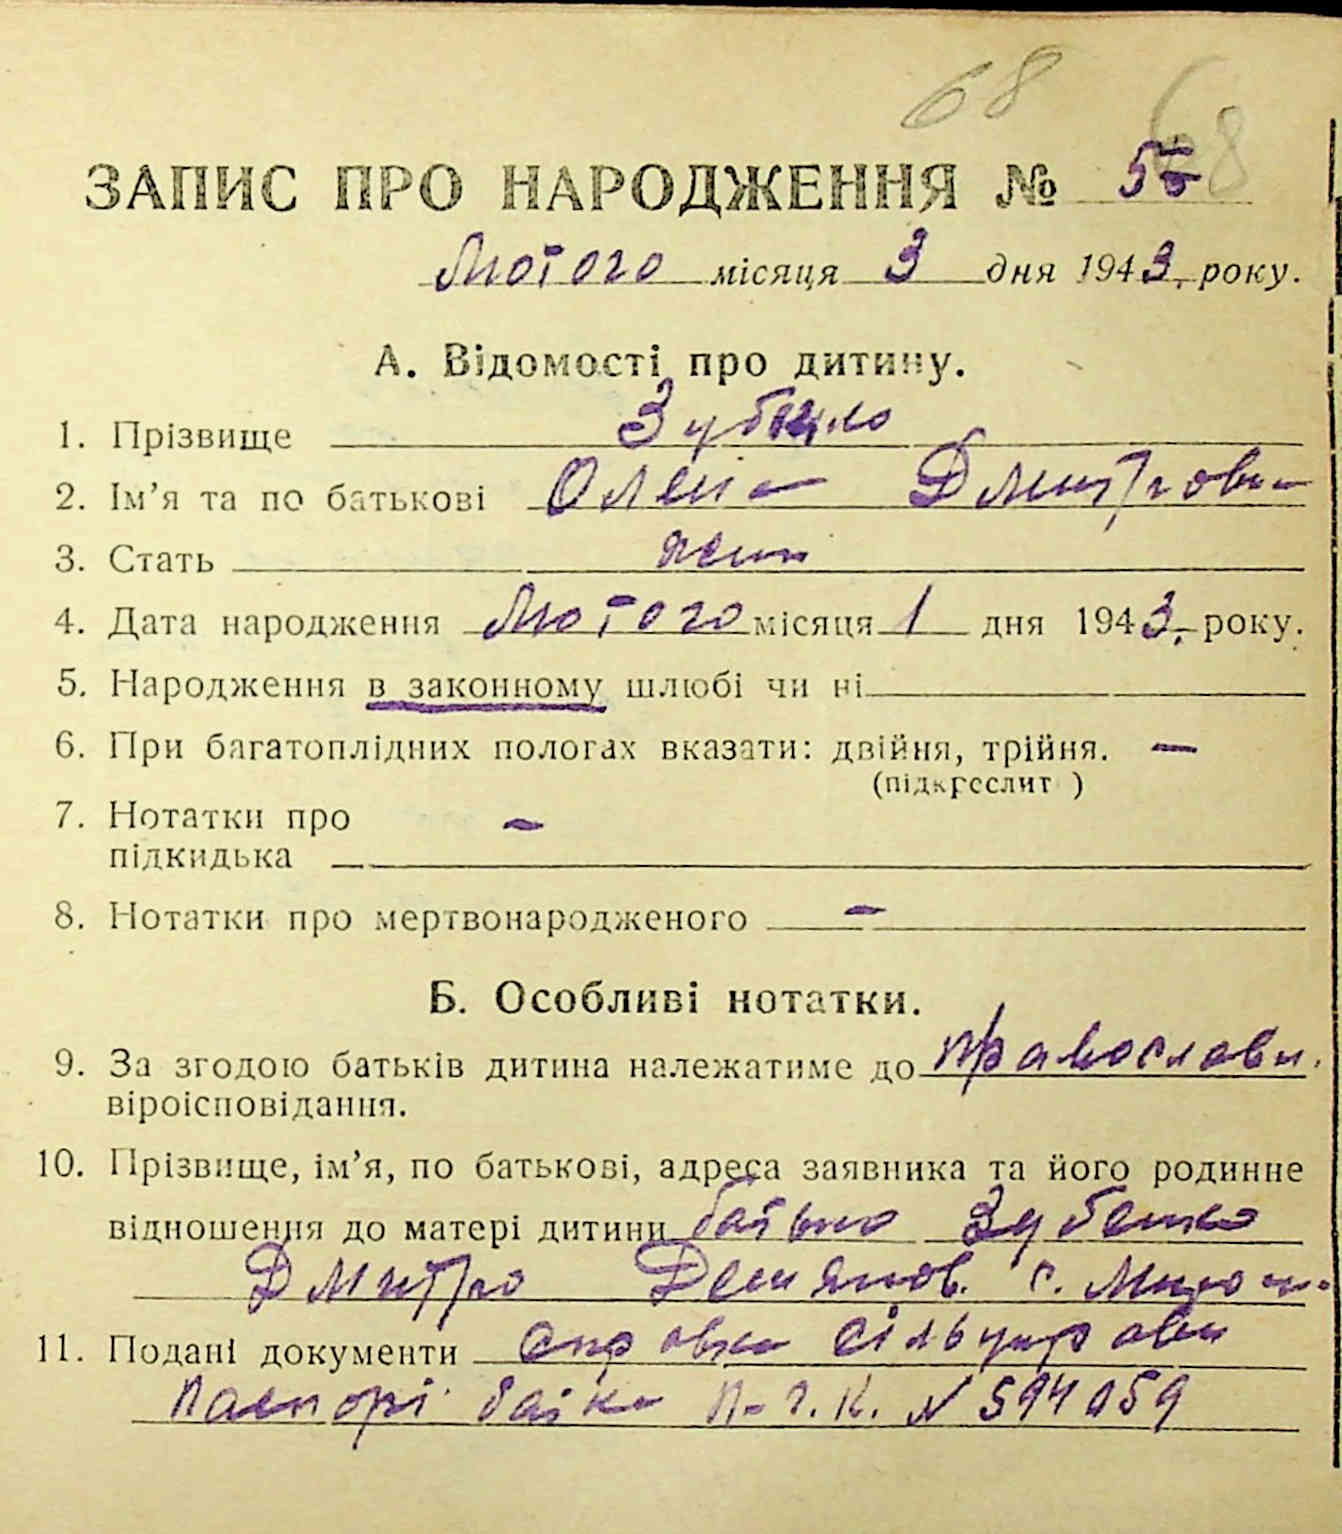 68 68
ЗАПИС ПРО НАРОДЖЕННЯ № 55
Лютого місяця 3 дня 1943, року.
А. Відомості про дитину.
1. Прізвище Зубенко
2. Ім'я та по батькові Олена Дмитровна
3. Стать жін
4. Дата народження Лютого місяця 1 дня 1943, року.
5. Народження в законному шлюбі чи ні
6. При багатоплідних пологах вказати: двійня, трійня. —
(підкреслит )
7. Нотатки про —
підкидька
8. Нотатки про мертвонародженого —
Б. Особливі нотатки.
9. За згодою батьків дитина належатиме до православн.
віроісповідання.
10. Прізвище, ім'я, по батькові, адреса заявника та його родинне
відношення до матері дитини батько Зубенко
Дмитро Демянов. с.
11. Подані документи справка сільуправи
Паспорт батька № 594059